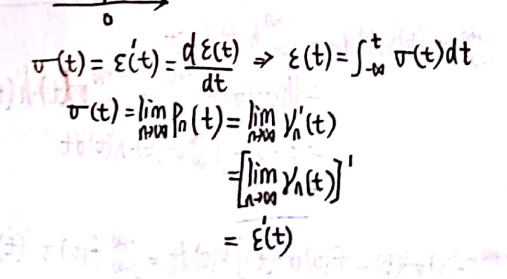 0
σ(t) = ε'(t) = dε(t)/dt ⇒ ε(t) = ∫_{-∞}^{t} σ(t)dt
σ(t) = lim_{n→∞} P_n(t) = lim_{n→∞} γ_n'(t)
= [lim_{n→∞} γ_n(t)]'
= ε'(t)